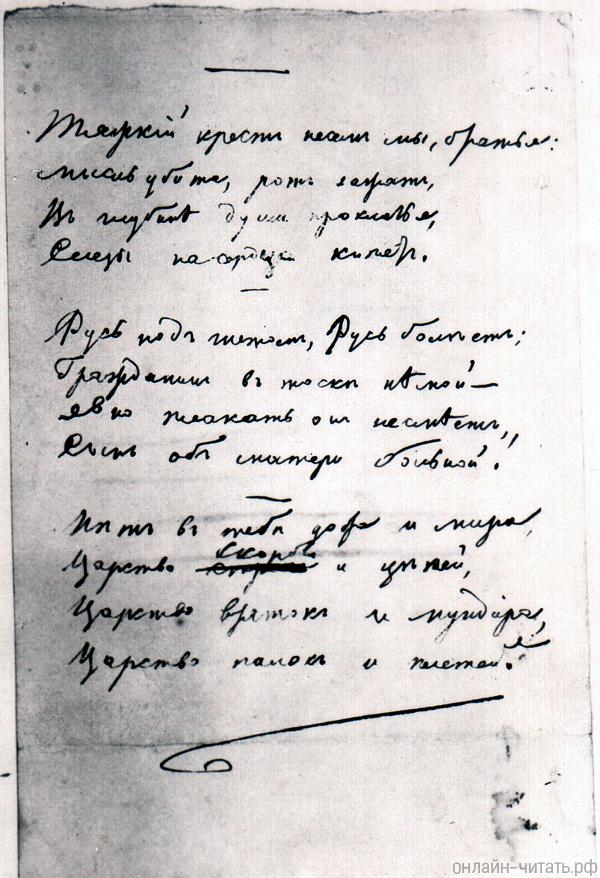 Тяжкій крестъ несемъ мы, братья:
мысль убита, ротъ зажатъ,
Въ глубинѣ души проклятья,
Слезы на сердце кипятъ.
Русь подъ гнетомъ, Русь болѣетъ;
Гражданинъ въ тоскѣ нѣмой—
явно плакать онъ несмѣетъ,
Сынъ объ матери больной!
Нѣтъ въ тебѣ добра и мира,
Царство скорби и цѣпей,
Царство взятокъ и мундира,
Царство палокъ и плетей!
онлайн-читать.рф